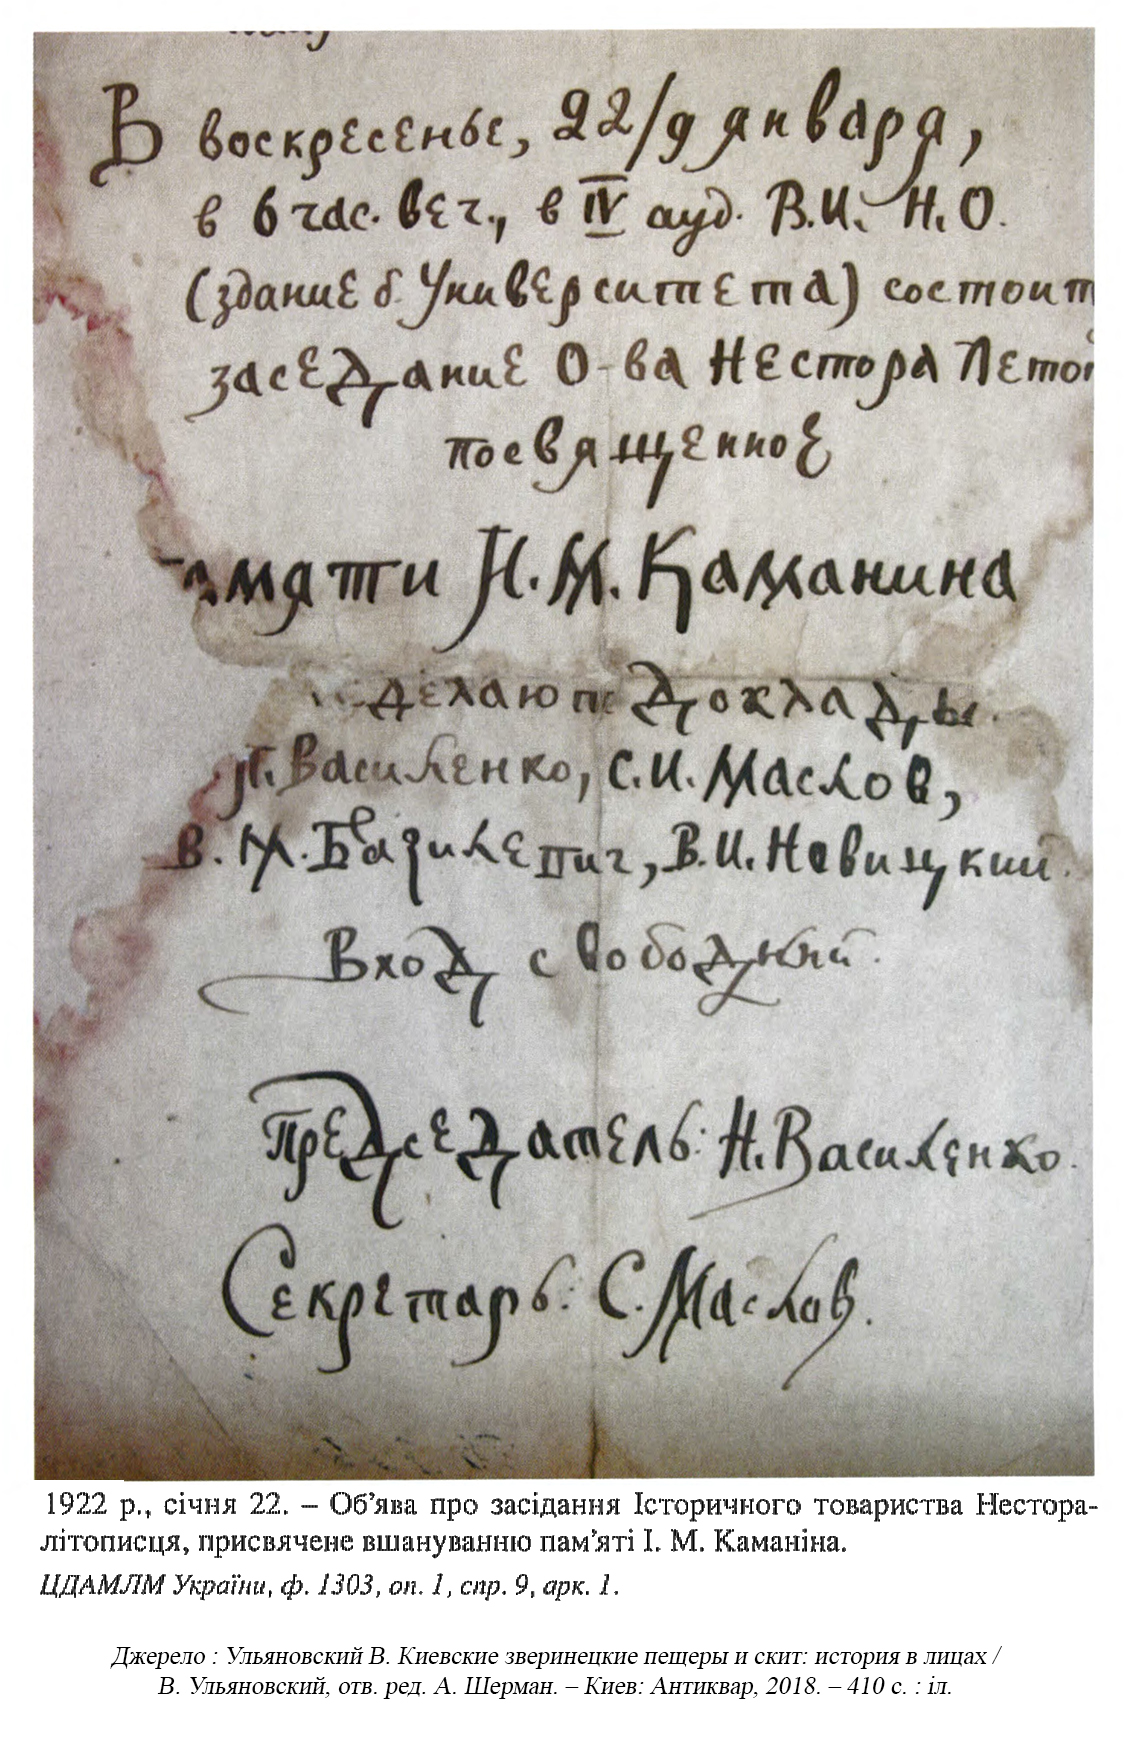 В воскресенье, 22/9 января,
в 6 час. веч., в IV ауд. В.И.Н.О.
(здание б. Университета) состоит
заседание О-ва Нестора Летоп
посвященное
памяти И.М. Каманина
делают доклады
Василенко, С.И. Маслов,
В.М. Базилевич, В.И. Новицкий.
Вход свободный.
Председатель: Н. Василенко.
Секретарь: С. Маслов.
1922 р., січня 22. – Об’ява про засідання Історичного товариства Нестора-
літописця, присвячене вшануванню пам’яті І. М. Каманіна.
ЦДАМЛМ України, ф. 1303, оп. 1, спр. 9, арк. 1.
Джерело : Ульяновский В. Киевские зверинецкие пещеры и скит: история в лицах /
В. Ульяновский, отв. ред. А. Шерман. – Киев: Антиквар, 2018. – 410 с. : іл.